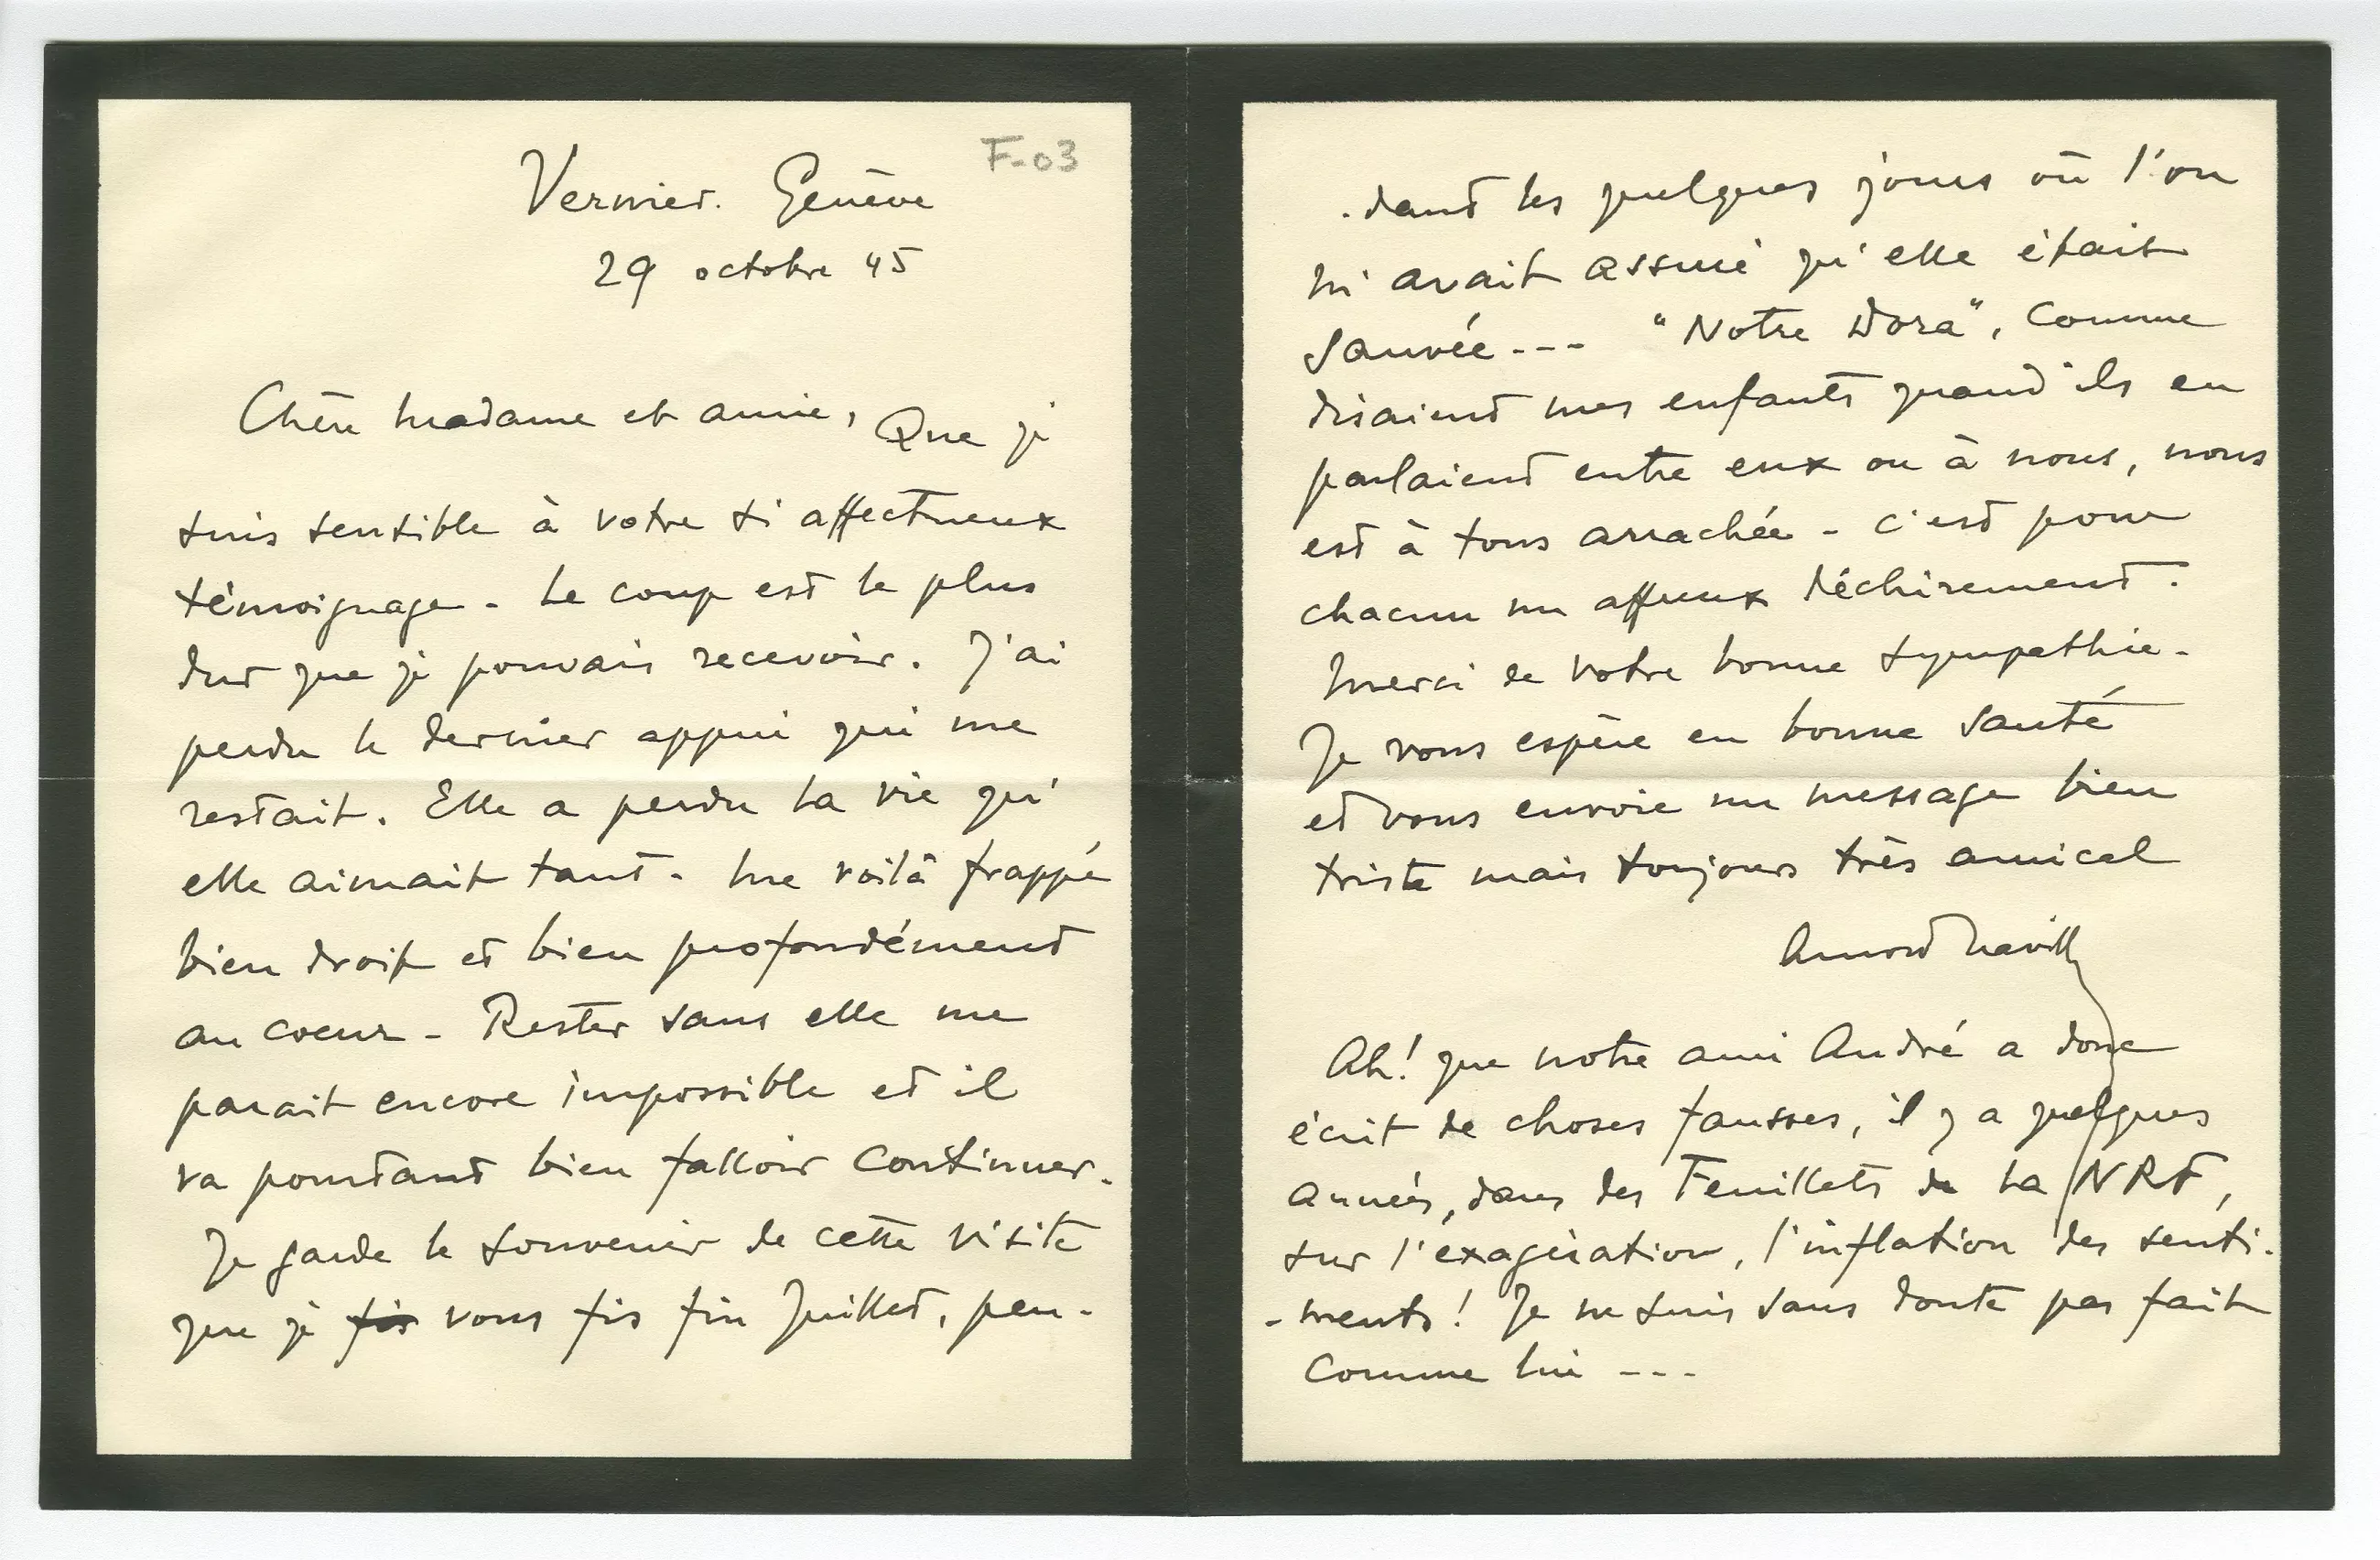 F-03
Vernier. Genève
29 octobre 45
Chère Madame et amie, Que je
suis sensible à votre si affectueux
témoignage - Le coup est le plus
dur que je pouvais recevoir. J'ai
perdu le dernier appui qui me
restait. Elle a perdu la vie qu'
elle aimait tant - Me voilà frappé
bien droit et bien profondément
au coeur - Rester sans elle me
parait encore impossible et il
va pourtant bien falloir continuer.
Je garde le souvenir de cette visite
que je fis vous fis fin Juillet, pen-
-dant les quelques jours où l'on
m'avait assuré qu'elle était
sauvée --- "Notre Dora", comme
disaient mes enfants quand ils en
parlaient entre eux ou à nous, nous
est à tous arrachée - C'est pour
chacun un affreux déchirement.
Merci de votre bonne sympathie -
Je vous espère en bonne santé
et vous envoie un message bien
triste mais toujours très amical
Arnold Naville
Ah! que notre ami André a donc
écrit de choses fausses, il y a quelques
années, dans des Feuillets de la NRF,
sur l'exagération, l'inflation des senti-
-ments! Je ne suis sans doute pas fait
comme lui ---